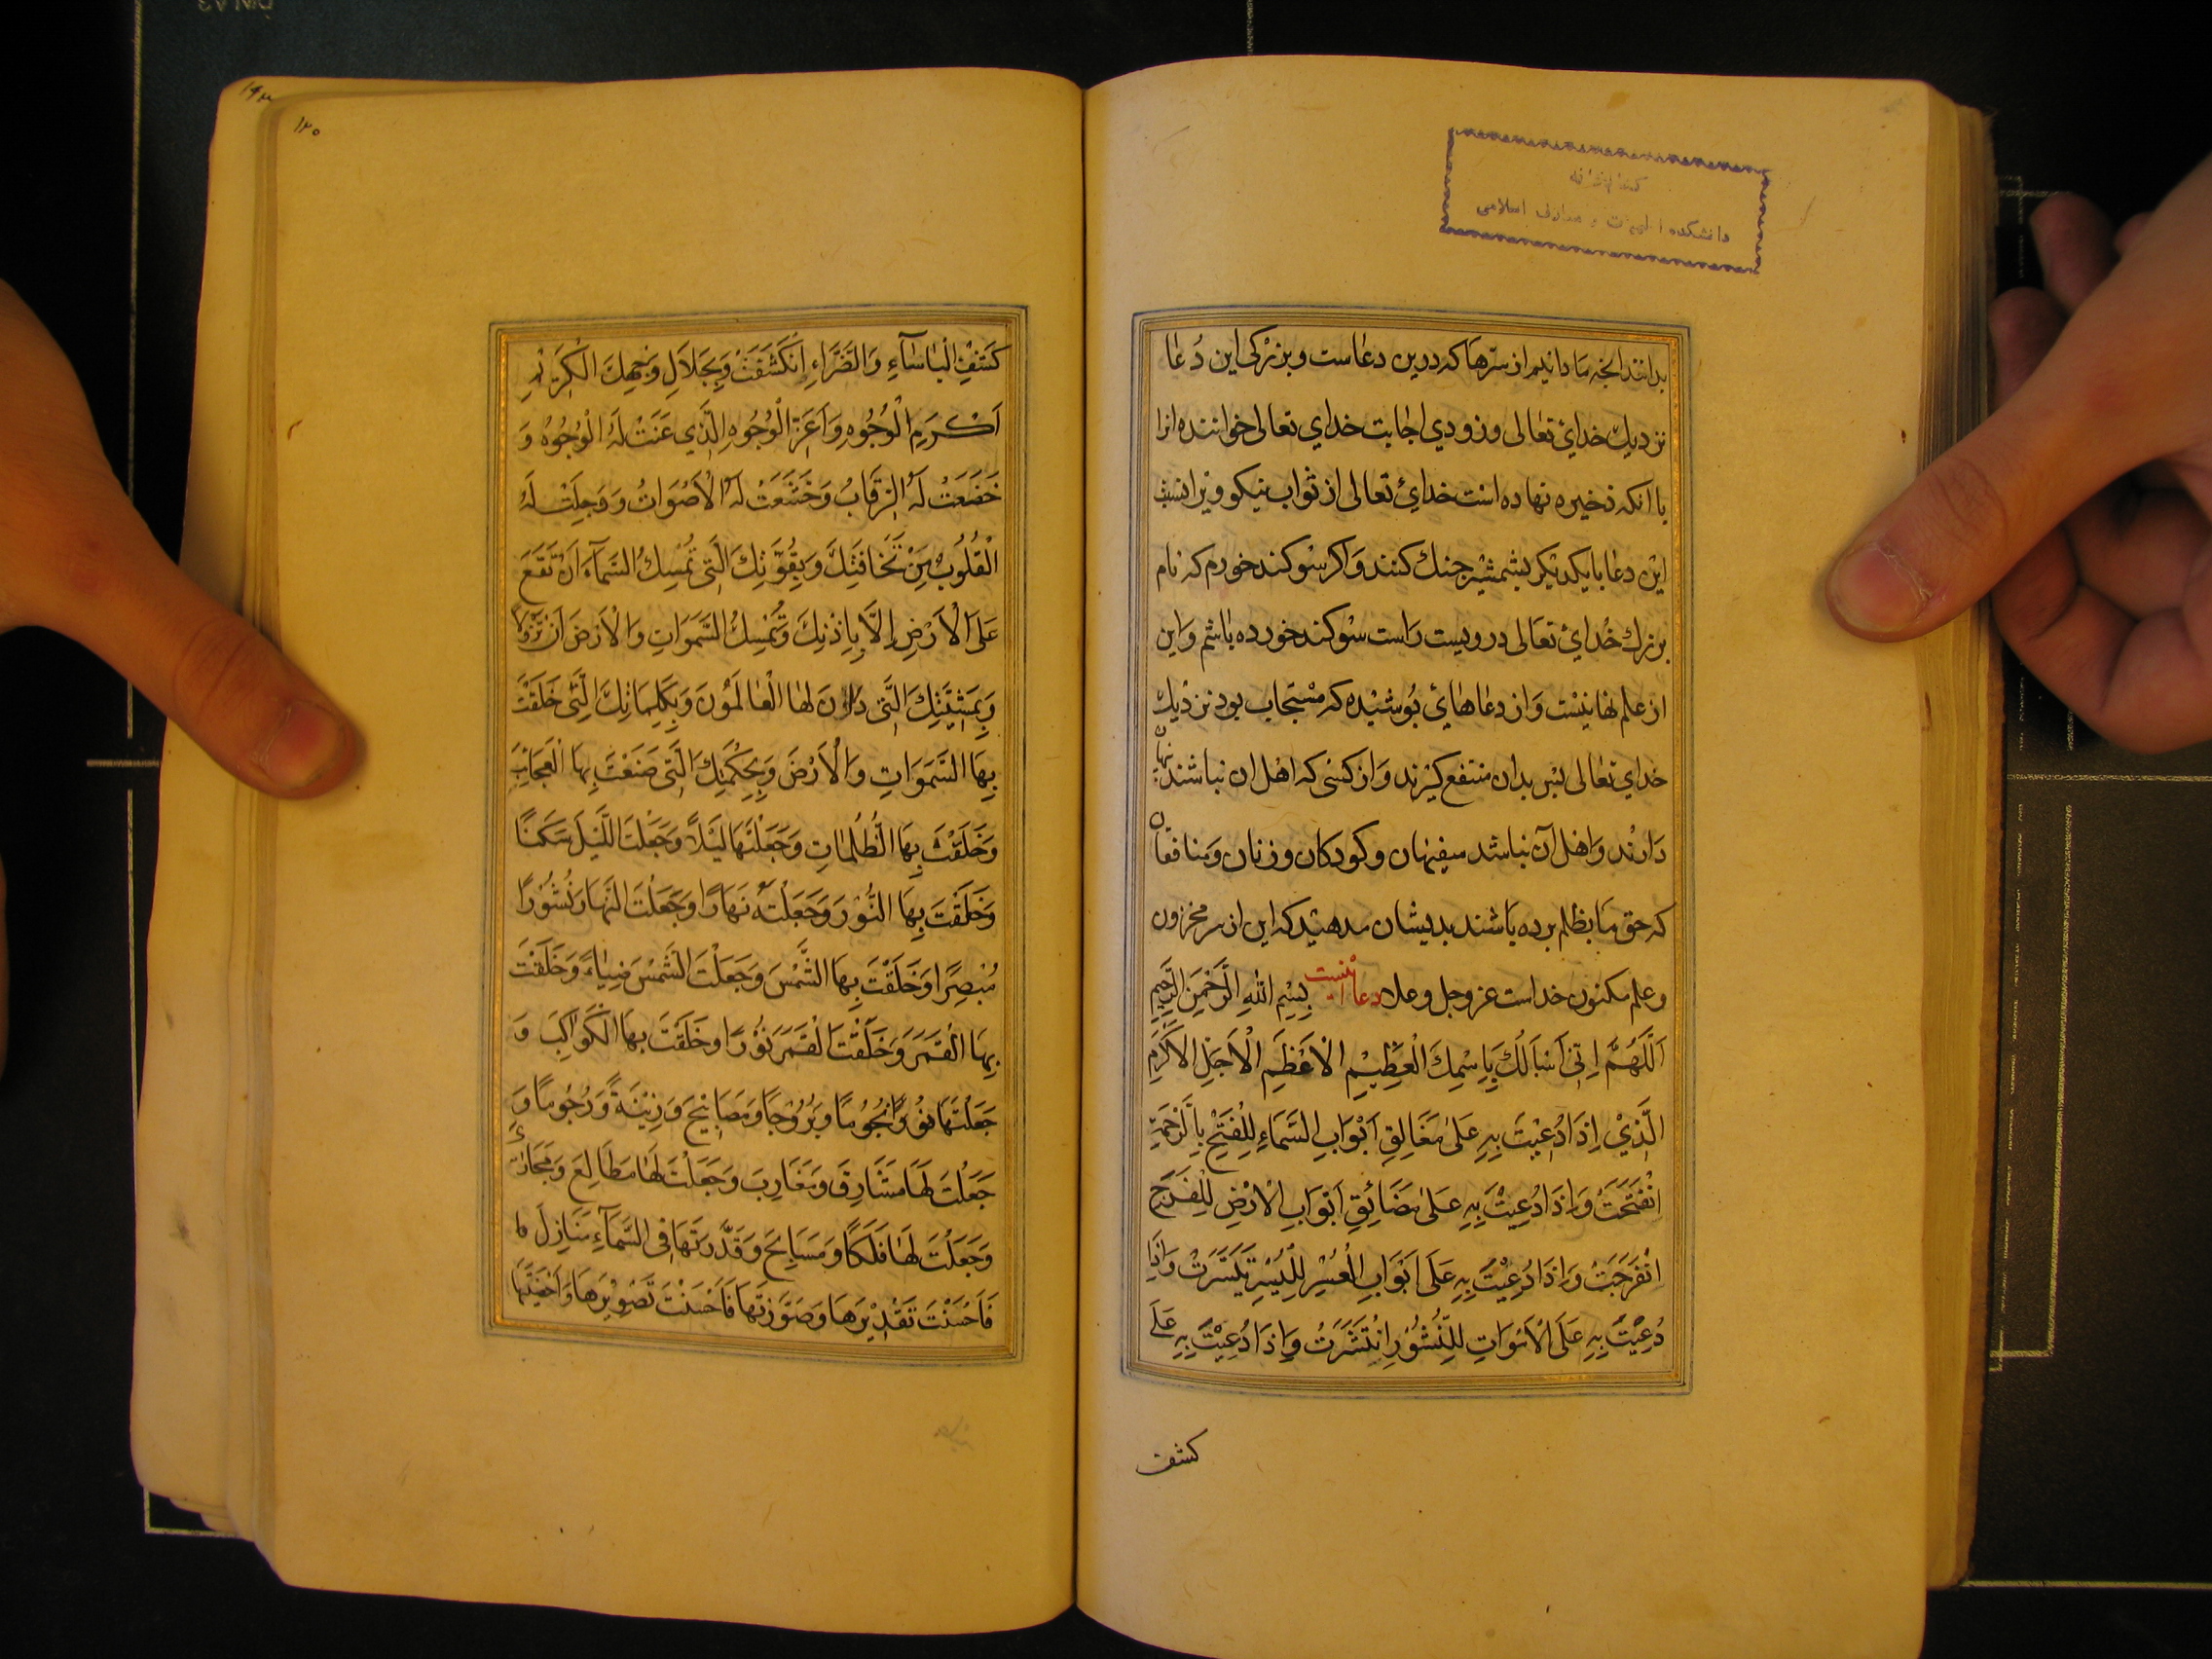 كتابخانه
دانشكده الهيات و معارف اسلامى
بدانند انچه ما دانیم از سرّها که درین دعاست و بزرکی این دُعا
نزدیك خدائ تعالی و زودی اجابت خدای تعالی خواننده انرا
با انکه ذخیره نهاده است خدائ تعالی از ثواب نیکو و برا نسبت
این دعا با یکدیکر بشمشیر جنك کنند وَاکر سوکند خورم که نام
بزرك خدائ تعالی درویست راست سوکند خورده باشم وَاین
از علم نهانیست وَاز دعاهائ پوشیده که مستجاب بود نزدیك
خدای تعالی بس بدان منتفع کیرند وَاز کسی که اهل ان نباشند نهان
دارند وَاهل آن نباشد سفیهان وکودکان وزنان وَمنافقان
که حق ما بظلم برده باشند بدیشان مدهید که این از سر مخزون
وعلم مکنون خداست عز وجل وعلا دعا اینست بِسْمِ اللهِ الرَّحْمنِ الرَّحِیمِ
اَللّهُمَّ اِنّی اَسْاَلُكَ بِاِسْمِكَ الْعَظِیْمِ الْاَعْظَمِ الْاَجَلِّ الْاَکْرَمِ
الَّذِیْ اِذَا دُعِیْتَ بِهِ عَلَی مَغَالِقِ اَبْوَابِ السَّمَاءِ لِلْفَتْحِ بِالرَّحْمَةِ
انْفَتَحَتْ وَاِذَا دُعِیْتَ بِهِ عَلَی مَضَائِقِ اَبْوَابِ الْاَرْضِ لِلْفَرَجِ
انْفَرَجَتْ وَاِذَا دُعِیْتَ بِهِ عَلَی اَبْوَابِ الْعُسْرِ لِلْیُسْرِ تَیَسَّرَتْ وَاِذَا
دُعِیْتَ بِهِ عَلَی الْاَمْوَاتِ لِلنُّشُوْرِ انْتَشَرَتْ وَاِذَا دُعِیْتَ بِهِ عَلَی
کشف
۱۲۰
کَشْفِ الْبَاسَآءِ وَالضَّرَّاءِ انْکَشَفَتْ وَبِجَلَالِ وَجْهِكَ الْکَرِیْمِ
اَکْرَمِ الْوُجُوْهِ وَاَعَزِّ الْوُجُوْهِ الَّذِی عَنَتْ لَهُ الْوُجُوْهُ وَ
خَضَعَتْ لَهُ الرِّقَابُ وَخَشَعَتْ لَهُ الْاَصْوَاتُ وَوَجِلَتْ لَهُ
الْقُلُوْبُ مِنْ مَخَافَتِكَ وَبِقُوَّتِكَ الَّتِی تُمْسِكُ السَّمَآءَ اَنْ تَقَعَ
عَلَی الْاَرْضِ اِلَّا بِاِذْنِكَ وَتُمْسِكُ السَّمَوَاتِ وَالْاَرْضَ اَنْ تَزُوْلَا
وَبِمَشِیَّتِكَ الَّتِی دَانَ لَهَا الْعَالَمُوْنَ وَبِکَلِمَاتِكَ الَّتِی خَلَقْتَ
بِهَا السَّمَوَاتِ وَالْاَرْضَ وَبِحِکْمَتِكَ الَّتِی صَنَعْتَ بِهَا الْعَجَائِبَ
وَخَلَقْتَ بِهَا الظُّلُمَاتِ وَجَعَلْتَهَا لَیْلًا وَجَعَلْتَ اللَّیْلَ سَکَنًا
وَخَلَقْتَ بِهَا النُّوْرَ وَجَعَلْتَهُ نَهَارًا وَجَعَلْتَ النَّهَارَ نُشُوْرًا
مُبْصِرًا وَخَلَقْتَ بِهَا الشَّمْسَ وَجَعَلْتَ الشَّمْسَ ضِیَاءً وَخَلَقْتَ
بِهَا الْقَمَرَ وَخَلَقْتَ الْقَمَرَ نُوْرًا وَخَلَقْتَ بِهَا الْکَوَاکِبَ وَ
جَعَلْتَهَا نُجُوْمًا وَبُرُوْجًا وَمَصَابِیْحَ وَزِیْنَةً وَرُجُوْمًا وَ
جَعَلْتَ لَهَا مَشَارِقَ وَمَغَارِبَ وَجَعَلْتَ لَهَا مَطَالِعَ وَمَجَارِیَ
وَجَعَلْتَ لَهَا فَلَکًا وَمَسَابِحَ وَقَدَّرْتَهَا فِی السَّمَآءِ مَنَازِلَ
فَاَحْسَنْتَ تَقْدِیْرَهَا وَصَوَّرْتَهَا فَاَحْسَنْتَ تَصْوِیْرَهَا وَاَحْصَیْتَهَا